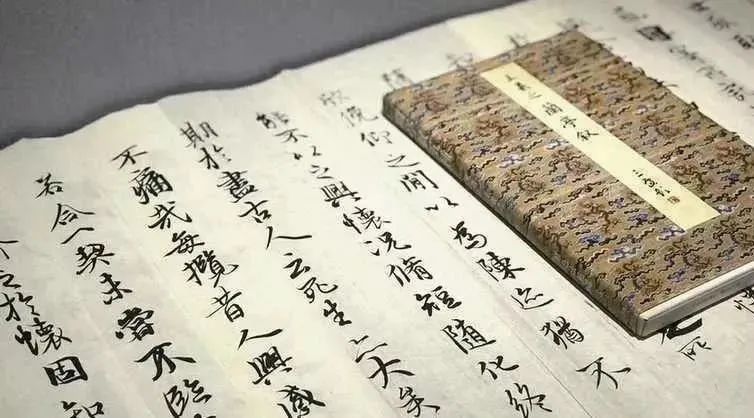 王羲之蘭亭敘
隨
欣俛仰之閒以為陳迹猶不
能不以之興懷況脩短隨化終
期於盡古人云死生亦大矣
不痛哉每攬昔人興感
若合一契未嘗不臨
之於懷固知